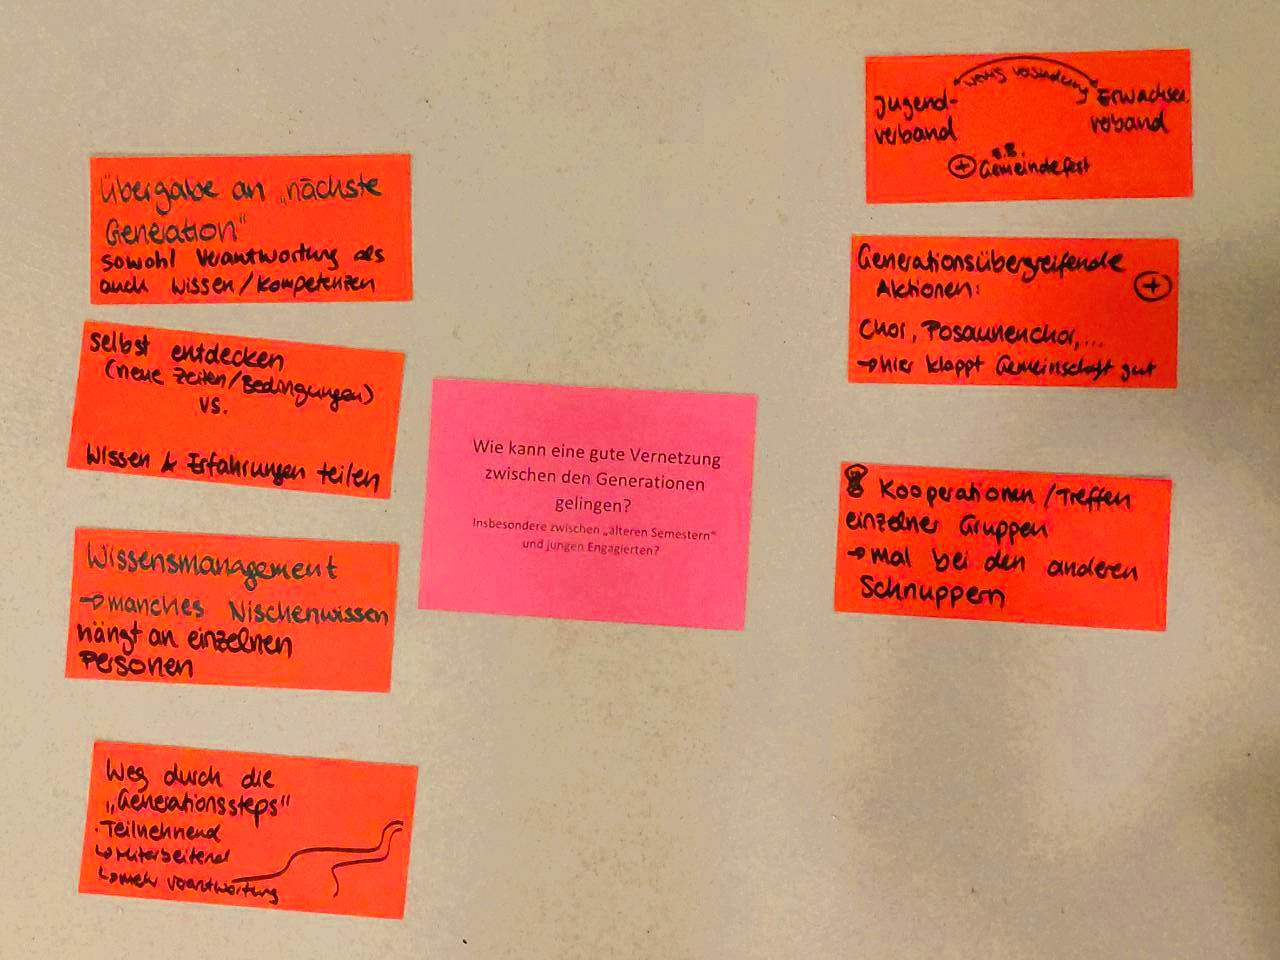 Übergabe an „nächste
Generation"
sowohl Verantwortung als
auch Wissen/Kompetenzen
selbst entdecken
(neue Zeiten/Bedingungen)
vs.
Wissen & Erfahrungen teilen
Wissensmanagement
→ manches Nischenwissen
hängt an einzelnen
Personen
Weg durch die
„Generationssteps"
· Teilnehmend
↳ Mitarbeitend
↳ mehr Verantwortung
Wie kann eine gute Vernetzung
zwischen den Generationen
gelingen?
Insbesondere zwischen „älteren Semestern"
und jungen Engagierten?
wenig Verbindung
Jugend-
verband
Erwachsen.
verband
z.B.
+ Gemeindefest
Generationsübergreifende
Aktionen:
+
Chor, Posaunenchor,...
→ hier klappt Gemeinschaft gut
Kooperationen/Treffen
einzelner Gruppen
→ mal bei den anderen
Schnuppern